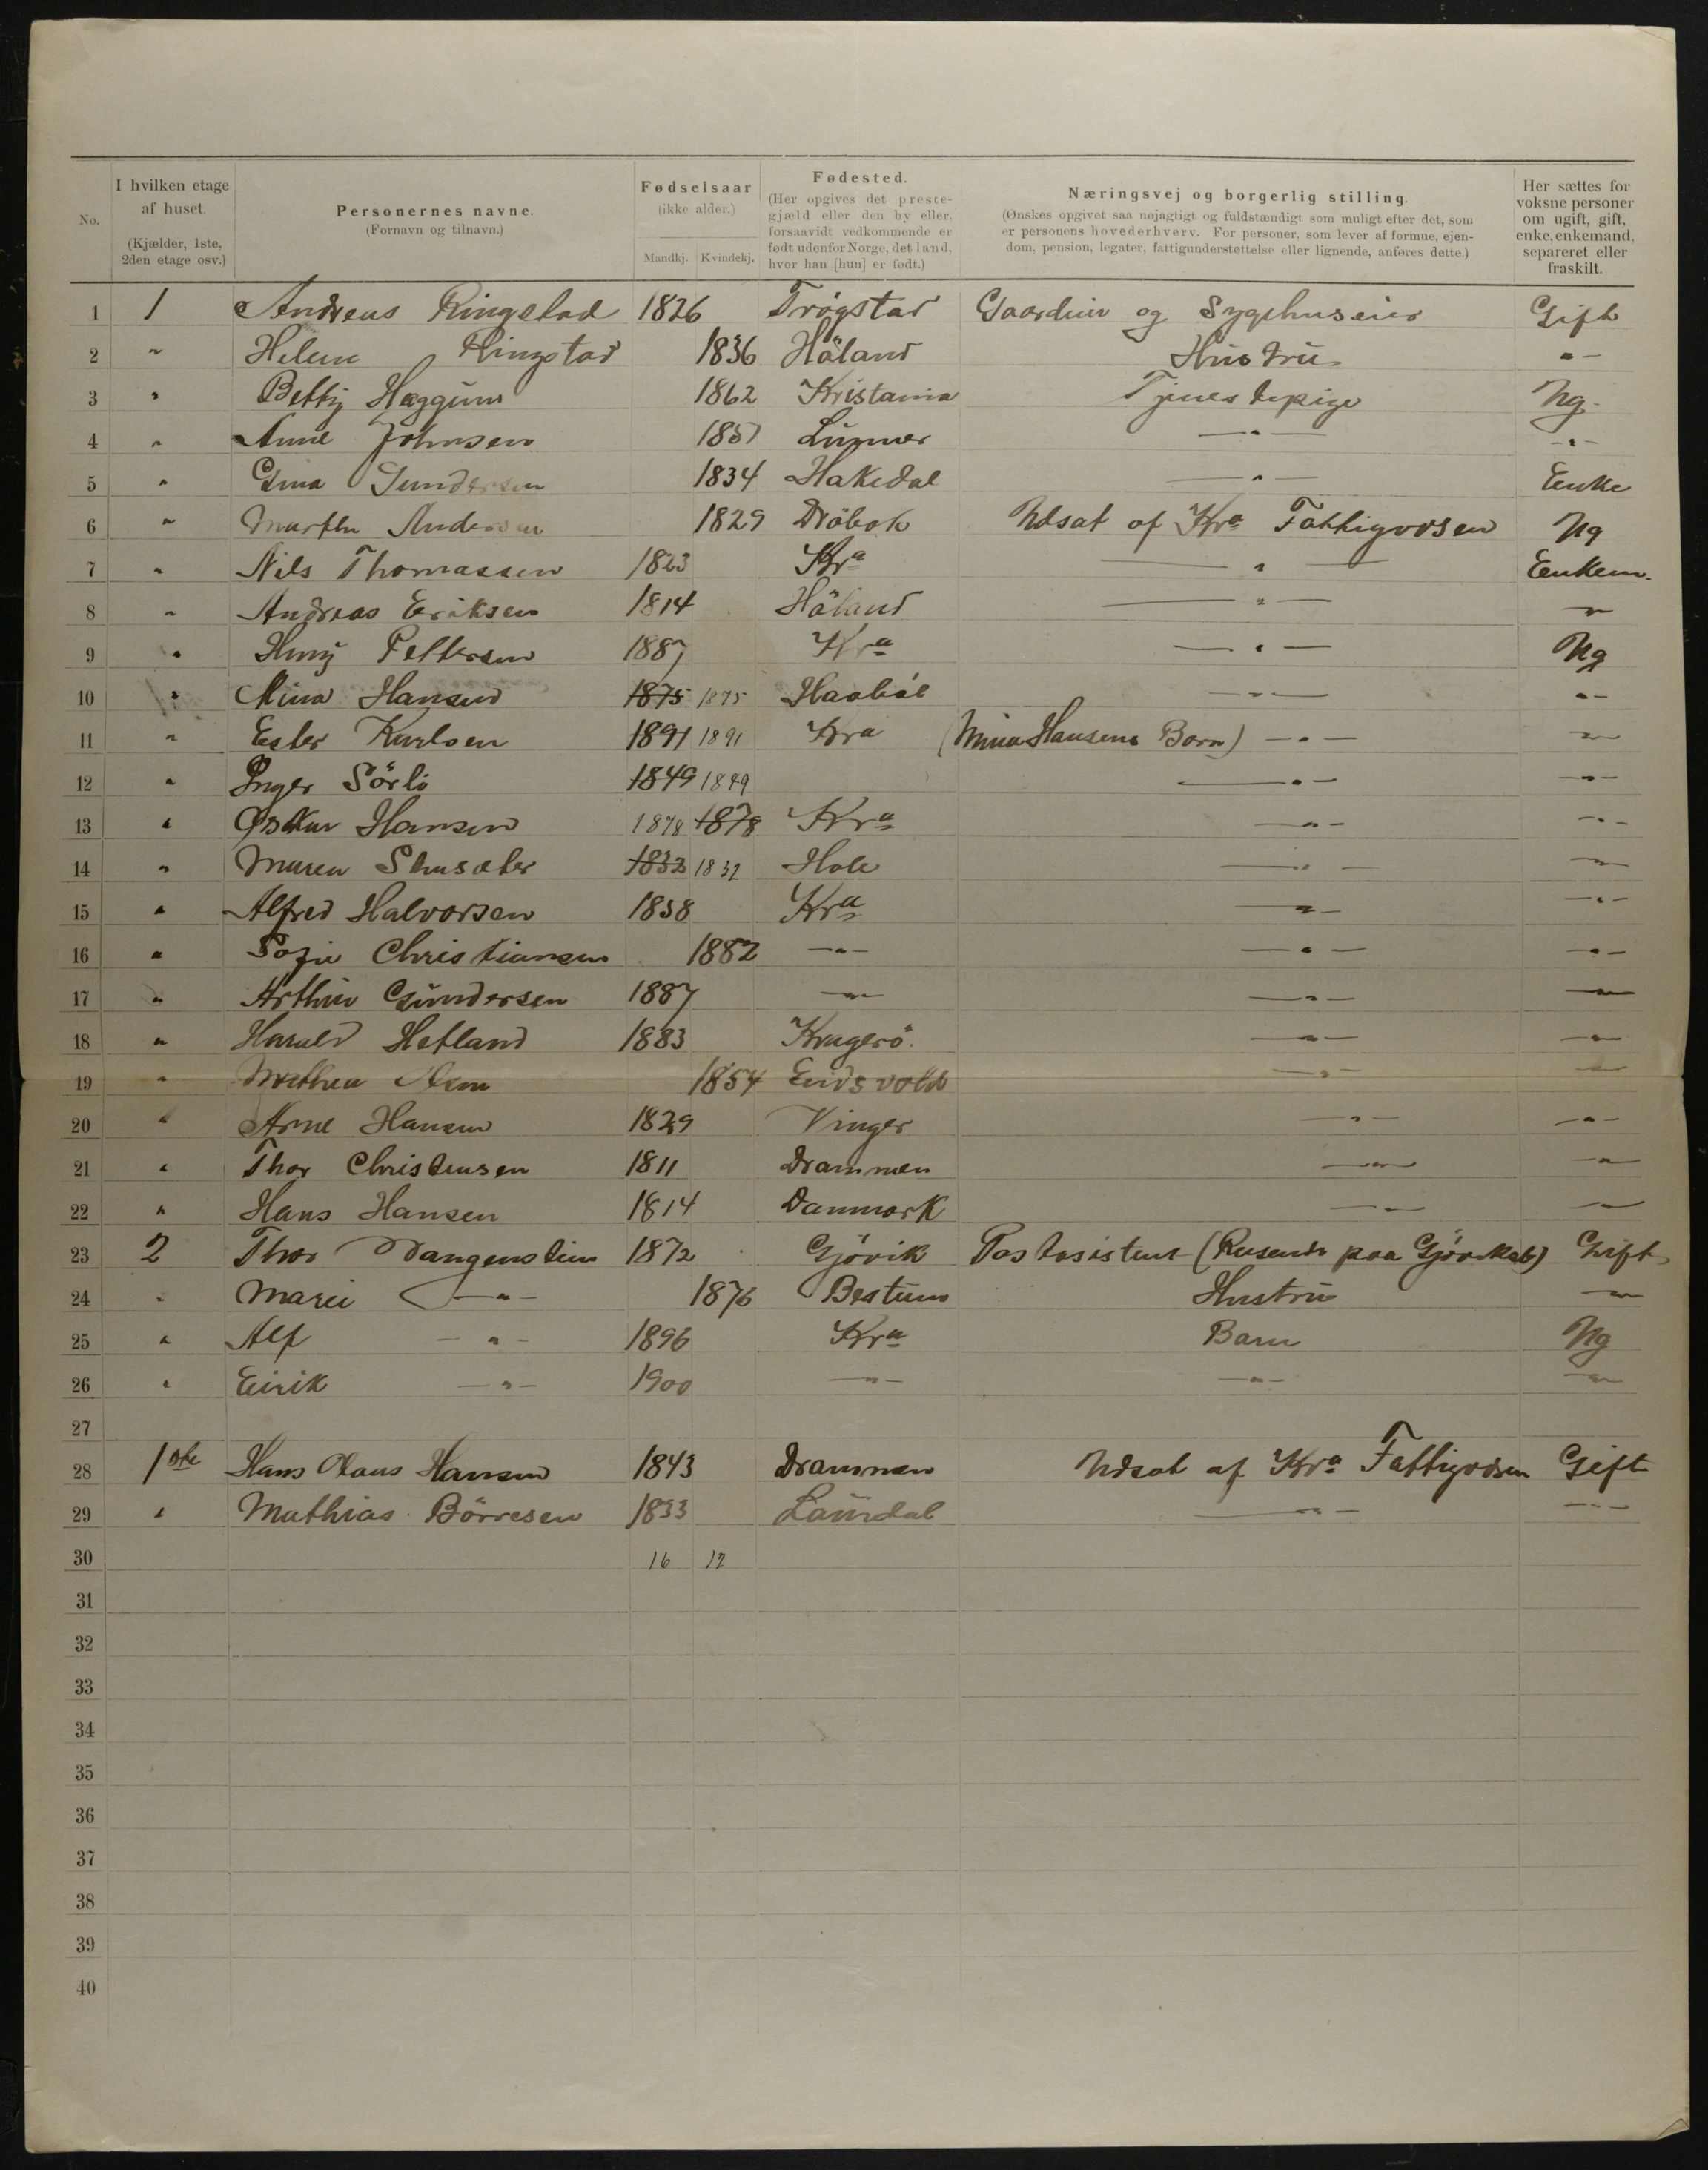 No.
I hvilken etage af huset. (Kjælder, 1ste, 2den etage osv.)
Personernes navne. (Fornavn og tilnavn.)
Fødselsaar (ikke alder.) Mandkj. Kvindekj.
Fødested. (Her opgives det prestegjæld eller den by eller, forsaavidt vedkommende er født udenfor Norge, det land, hvor han [hun] er født.)
Næringsvej og borgerlig stilling. (Ønskes opgivet saa nøjagtigt og fuldstændigt som muligt efter det, som er personens hovederhverv. For personer, som lever af formue, ejendom, pension, legater, fattigunderstøttelse eller lignende, anføres dette.)
Her sættes for voksne personer om ugift, gift, enke, enkemand, separeret eller fraskilt.
1 1 Andreas Ringstad 1826 Trögstad Gaardeier og Sygehuseier Gift
2 " Helene Ringstad 1836 Höland Hustru -"-
3 " Betty Haggum 1862 Kristania Tjenestepige Ug.
4 " Anne Johnsen 1857 Lunner -"- -"-
5 " Gina Gundersen 1834 Hakedal -"- Enke
6 " Marthe Andersen 1829 Dröbak Udsat af Kra Fattigvæsen Ug
7 " Nils Thomassen 1823 Kra -"- Enkem.
8 " Andreas Eriksen 1814 Höland -"- -"-
9 " Pettersen 1887 Kra -"- Ug
10 " Mina Hansen 1875 1875 Haaböl -"- -"-
11 " Ester Karlsen 1891 1891 Kra (Mina Hansens Barn) -"- -"-
12 " Inger Sörli 1849 1849 -"- -"-
13 " Oskar Hansen 1878 1878 Kra -"- -"-
14 " Maren 1832 1832 Hole -"- -"-
15 " Alfred Halvorsen 1858 Kra -"- -"-
16 " Sofie Christiansen 1882 -"- -"- -"-
17 " Arthur Gundersen 1887 -"- -"- -"-
18 " Harald Hetland 1883 Kragerö. -"- -"-
19 " Mathea Olsen 1854 Eidsvold -"- -"-
20 " Arne Hansen 1829 Vinger -"- -"-
21 " Thor Christensen 1811 Drammen -"- -"-
22 " Hans Hansen 1814 Danmark -"- -"-
23 2 Thor Vangenstein 1872 Gjövik Postasistent (Reisende paa Gjövikab) Gift
24 " Marie -"- 1876 Bestum Hustru -"-
25 " Alf -"- 1896 Kra Barn Ug
26 " Eirik -"- 1900 -"- -"- -"-
27
28 1ste Hans Olaus Hansen 1843 Drammen Udsat af Kra Fattigvæsen Gift
29 " Mathias Börresen 1833 Laurdal -"- -"-
30 16 12
31
32
33
34
35
36
37
38
39
40